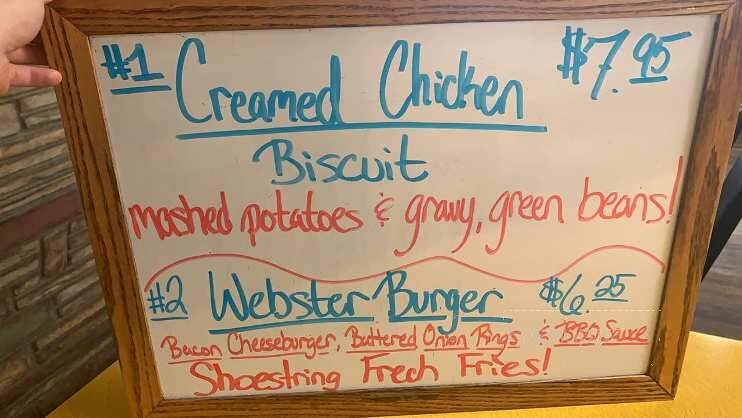 #1 Creamed Chicken $7.95
Biscuit
mashed potatoes & gravy, green beans!
#2 Webster Burger $6.25
Bacon Cheeseburger, Buttered Onion Rings & BBQ Sauce
Shoestring Frech Fries!